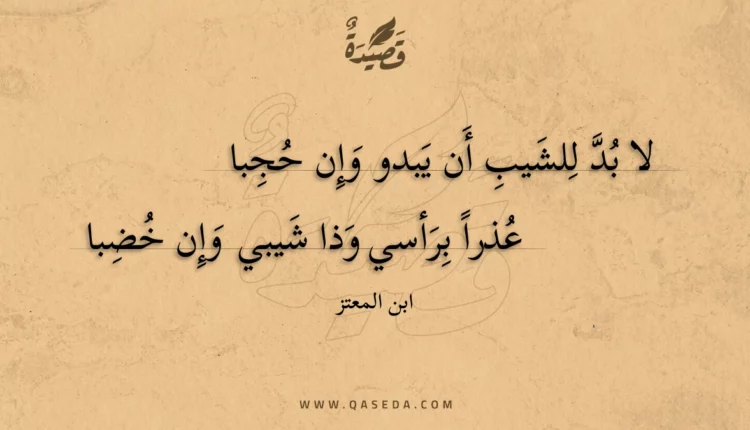 قَصِيدَةٌ
لا بُدَّ لِلشَيبِ أَن يَبدو وَإِن حُجِبا
عُذراً بِرَأسي وَذا شَيبي وَإِن خُضِبا
ابن المعتز
WWW.QASEDA.COM